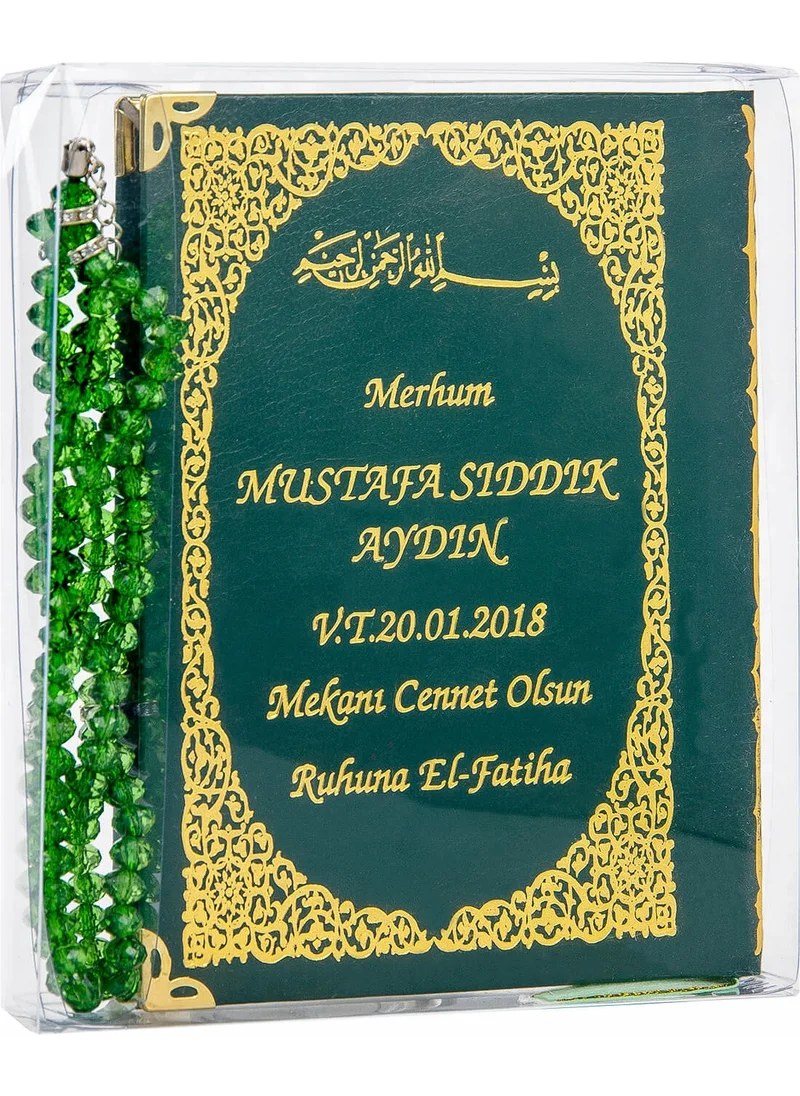 بِسْمِ اللهِ الرَّحْمٰنِ الرَّحِيمِ
Merhum
MUSTAFA SIDDIK
AYDIN
V.T.20.01.2018
Mekanı Cennet Olsun
Ruhuna El-Fatiha